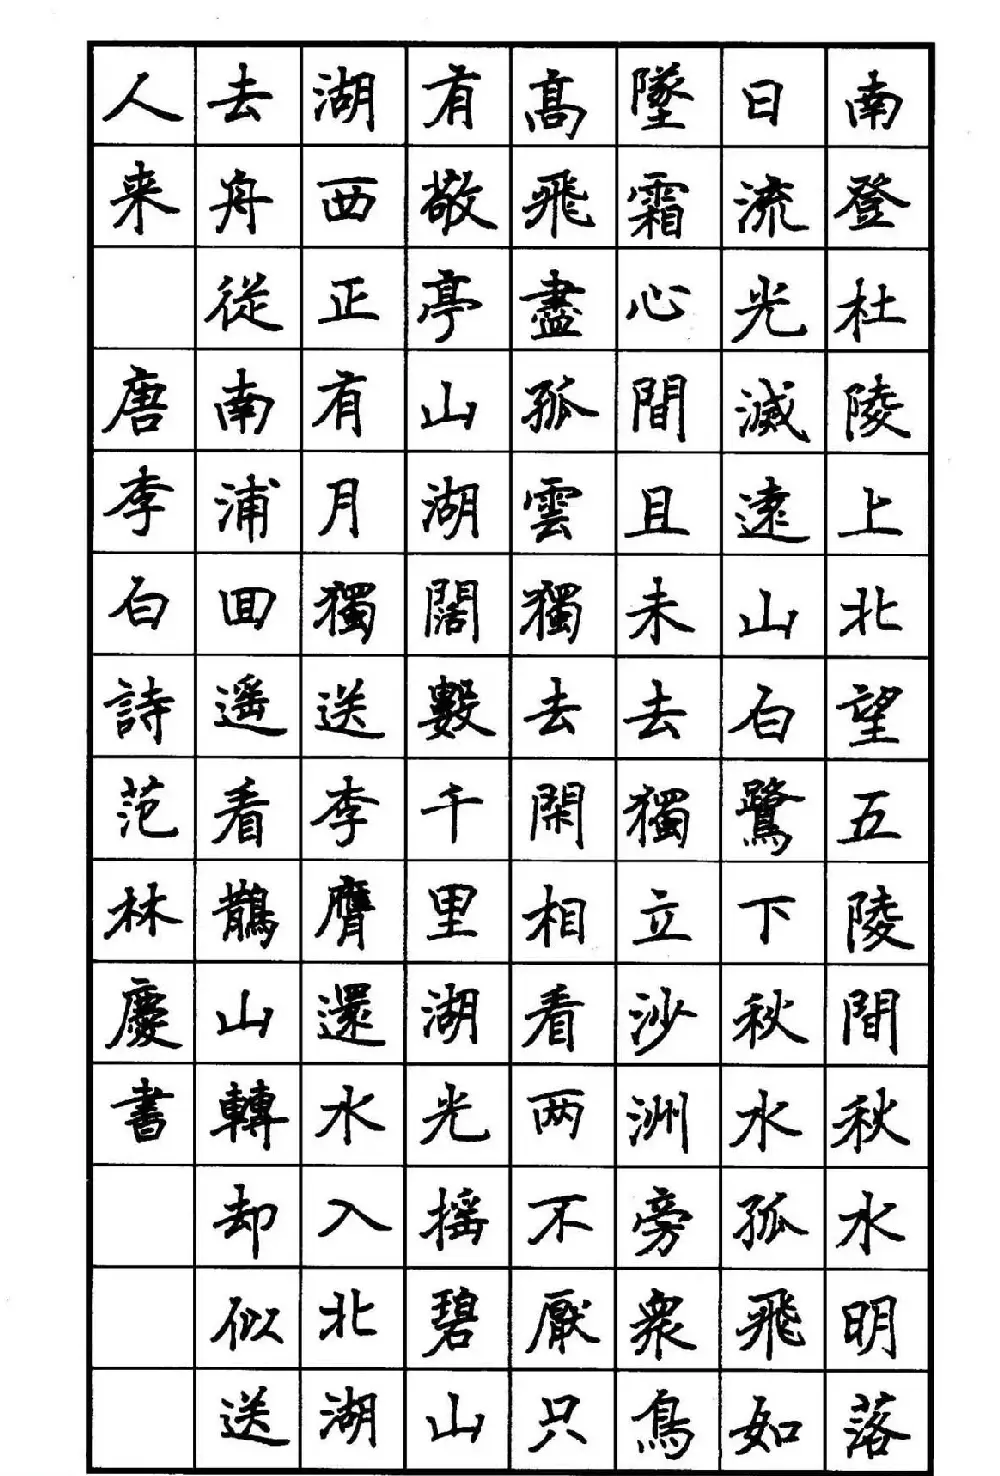 南登杜陵上北望五陵間秋水明落
日流光滅遠山白鷺下秋水孤飛如
墜霜心間且未去獨立沙洲旁衆鳥
高飛盡孤雲獨去閑相看两不厭只
有敬亭山湖闊數千里湖光摇碧山
湖西正有月獨送李膺還水入北湖
去舟從南浦回遥看鵲山轉却似送
人来 唐李白詩范林慶書